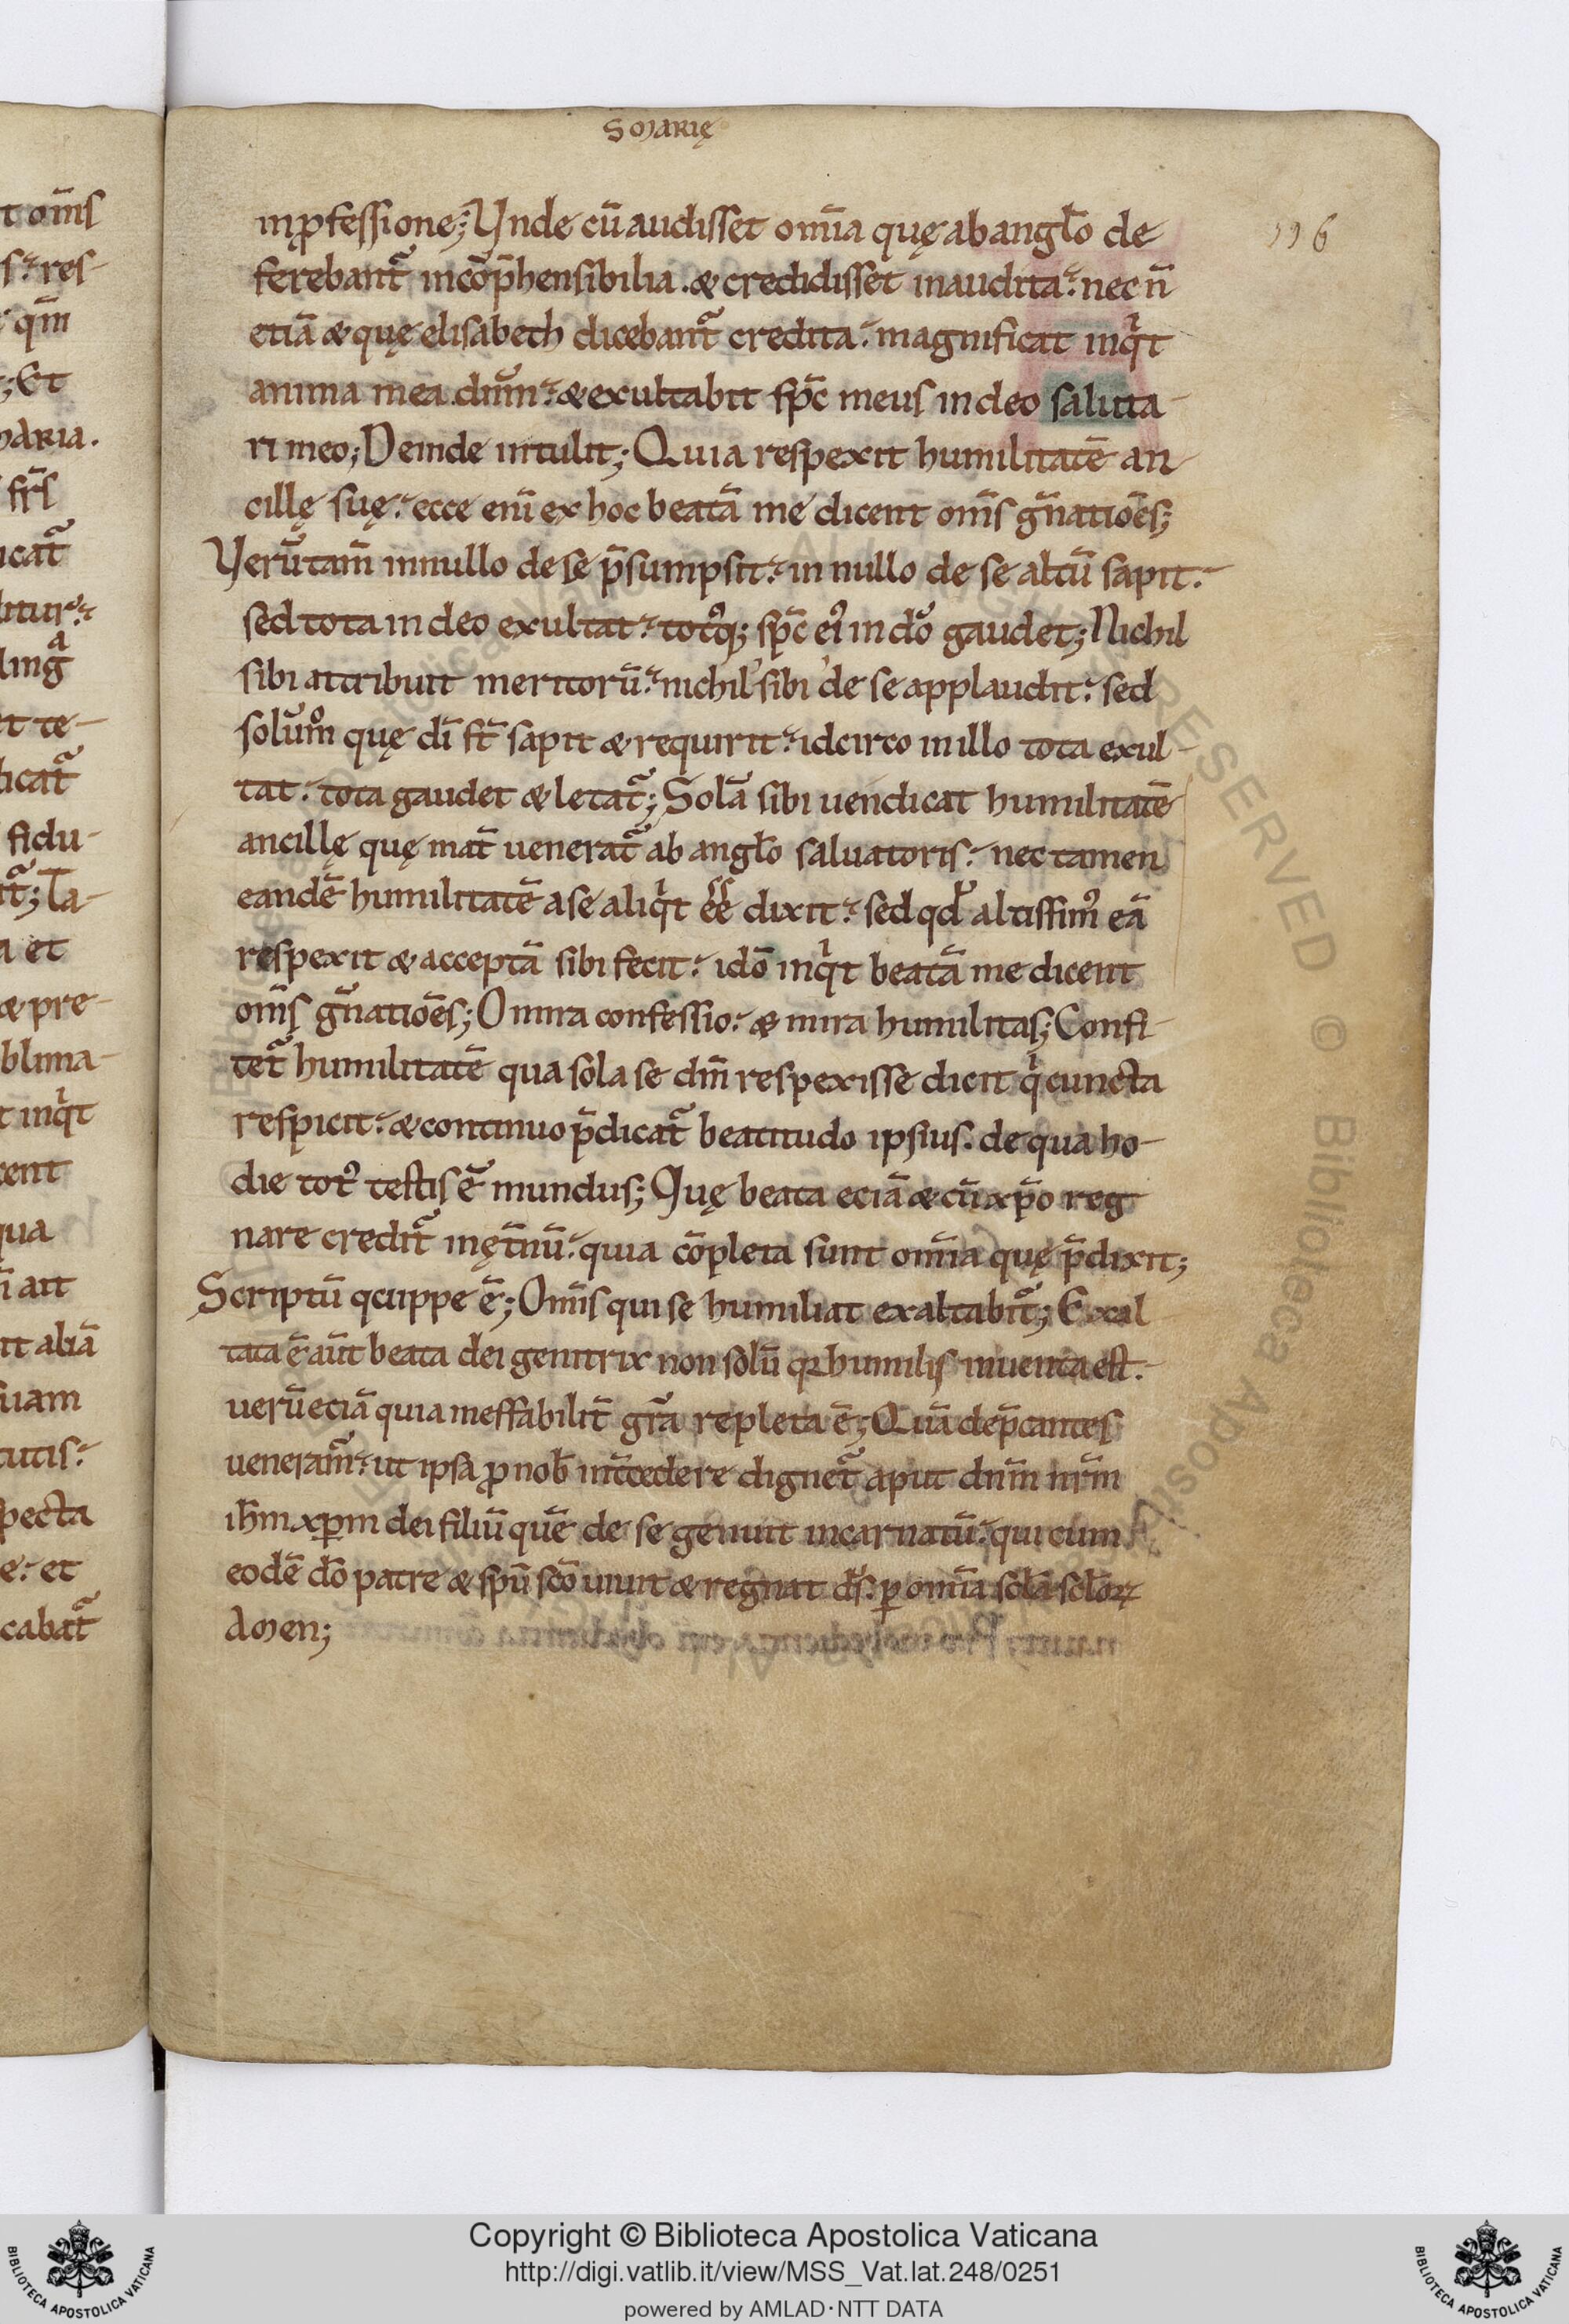 S MARIĘ
116
in ꝓfessione; Vnde cū audisset om̄ia quę ab angl̄o de
ferebant᷑ incōp̄hensibilia. & credidisset inaudita: nec n̄
etiā & quę elisabeth dicebant᷑ credita: magnificat inqͥt
anima mea dn̄m: & exultabit sp̄c meus in deo saluta-
ri meo; Deinde intulit; Quia respexit humilitatē an-
cillę suę: ecce eni̅ ex hoc beatā me dicent om̄s gn̄atiōes;
Verūtam̄ in nullo de se p̄sumpsit: in nullo de se altū sapit:
sed tota in deo exultat: totꝰq; sp̄c eiꝰ in dō gaudet; Nichil
sibi attribuit meritorū: nichil sibi de se applaudit: sed
solūm̊ quę dī st̄ sapit & requirit: idcirco in illo tota exul-
tat: tota gaudet & letat᷑; Solā sibi uendicat humilitatē
ancillę quę mat̄ uenerat᷑ ab angl̄o saluatoris: nec tamen
eandē humilitatē a se aliqͥt e̅e̅ dixit: sed qd̄ altissimꝰ eā
respexit & acceptā sibi fecit: idō inqͥt beatā me dicent
om̄s gn̄atiōes; O mira confessio: & mira humilitas; Confi-
tet᷑ humilitatē qua sola se dn̄m respexisse dicit qͥ cuncta
respicit: & continuo p̄dicat᷑ beatitudo ipsius. de qua ho-
die totꝰ testis ē mundus; Quę beata eciā & cū xp̄o reg
nare credit᷑ in ęt̄nū: quia cōpleta sunt om̄ia quę p̄dixit;
Scriptū qͣuppe ē; Om̄is qui se humiliat exaltabit᷑; Exal
tata ē aūt beata dei genitrix non solū qꝛ humilis inuenta est.
uerū eciā quia ineffabilit̄ gr̄a repleta ē; Quā dep̄cantes
ueneram̄: ut ipsa ꝓ nob̄ int̄cedere dignet᷑ aput dn̄m nr̄m
ih̄m xp̄m dei filiū quē de se genuit incarnatū: qui cum
eodē dō patre & spū scō uiuit & regnat ds̄. ꝑ om̄ia scl̄a scl̄oꝝ
AMEN;
Copyright © Biblioteca Apostolica Vaticana
http://digi.vatlib.it/view/MSS_Vat.lat.248/0251
powered by AMLAD·NTT DATA